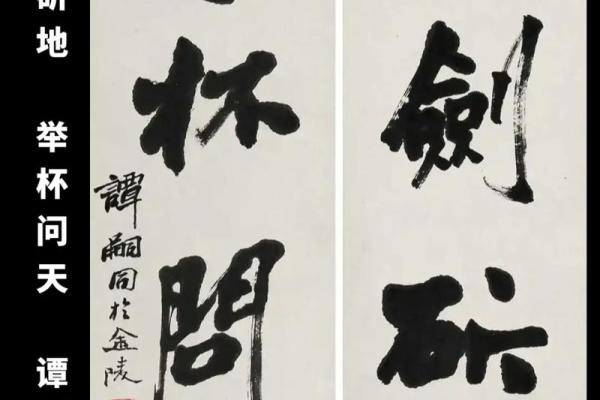 劍斫
杯問
譚嗣同於金陵
地 举杯问天 谭